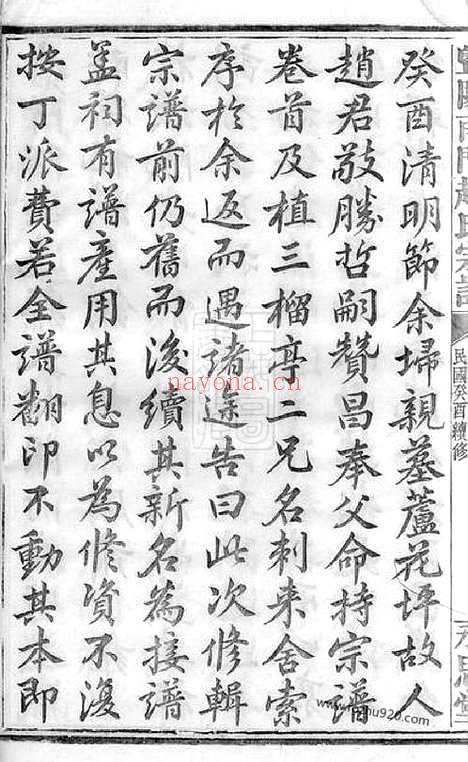 癸酉清明節余埽親墓蘆花坪故人
趙君敬勝哲嗣贊昌奉父命持宗譜
卷首及植三榴亭二兄名刺来舍索
序於余返而遇諸途告曰此次修輯
宗譜前仍舊而後續其新名為接譜
盖祠有譜產用其息以為修資不復
按丁派費若全譜翻印不動其本即
趙氏宗譜
民國癸酉續修
nayona.cn